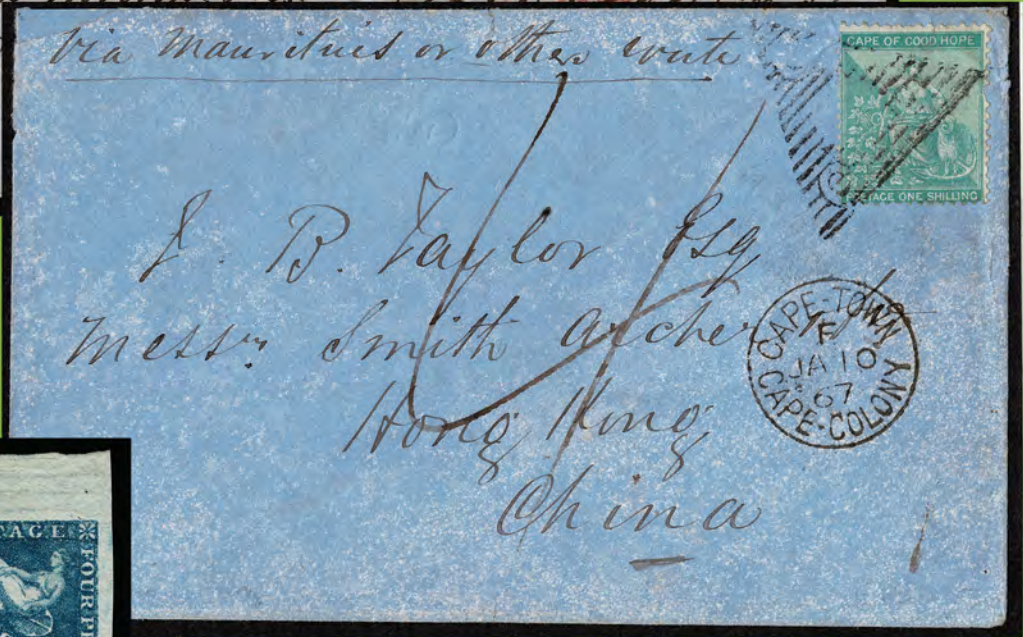 Via Mauritius or other route
CAPE OF GOOD HOPE
POSTAGE ONE SHILLING
J. B. Taylor Esq
Messrs Smith Archer & Co
Hong Kong
China
CAPE-TOWN
F
JA 10
67
CAPE-COLONY
1
AGE
FOUR PE